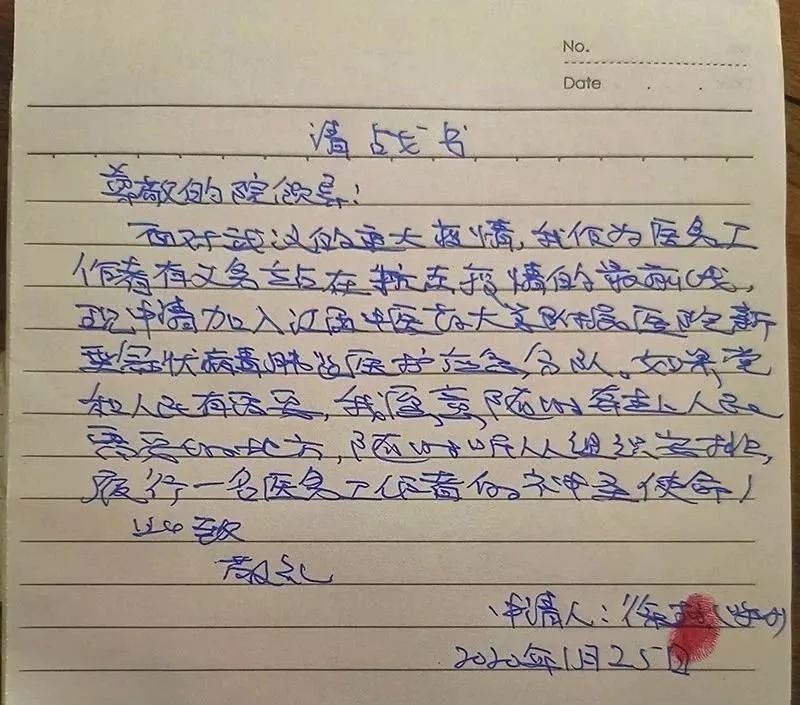 No.
Date . .
请战书
尊敬的院领导:
面对武汉的重大疫情,我作为医务工
作者有义务站在抗击疫情的最前线,
现申请加入江西中医药大学附属医院新
型冠状病毒肺炎医护应急分队。如果党
和人民有需要,我愿意随时奔赴人民
需要的地方,随时听从组织安排,
履行一名医务工作者的神圣使命!
此致
敬礼
申请人:徐
2020年1月25日